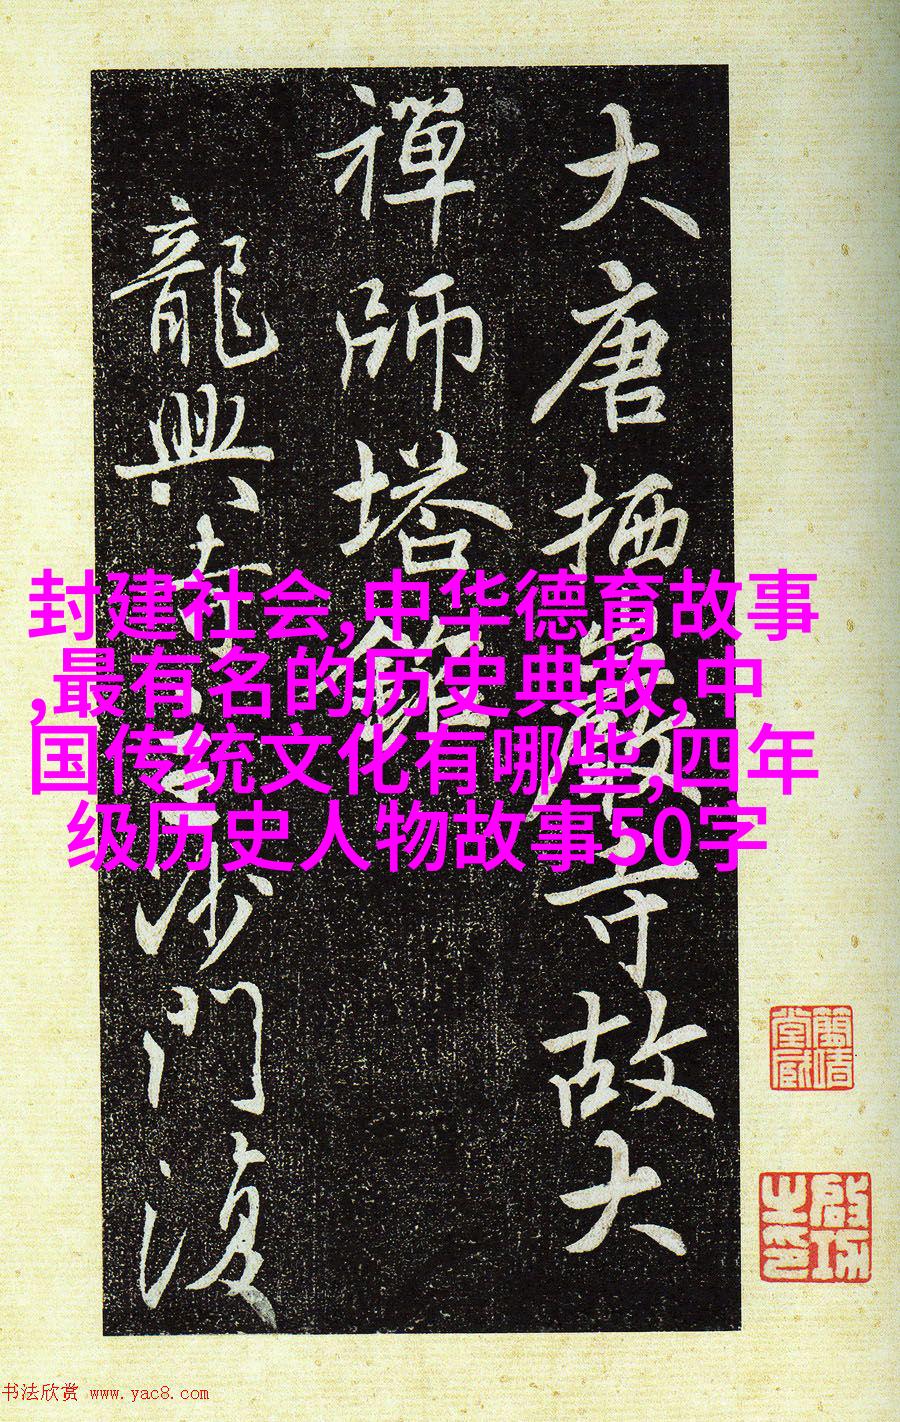 大唐栖巖寺故大
禪師塔銘
龍興寺沙門復
封建社会,中华德育故事
,最有名的历史典故,中
国传统文化有哪些,四年
级历史人物故事50字
啟功之印
书法欣赏 www.yac8.com